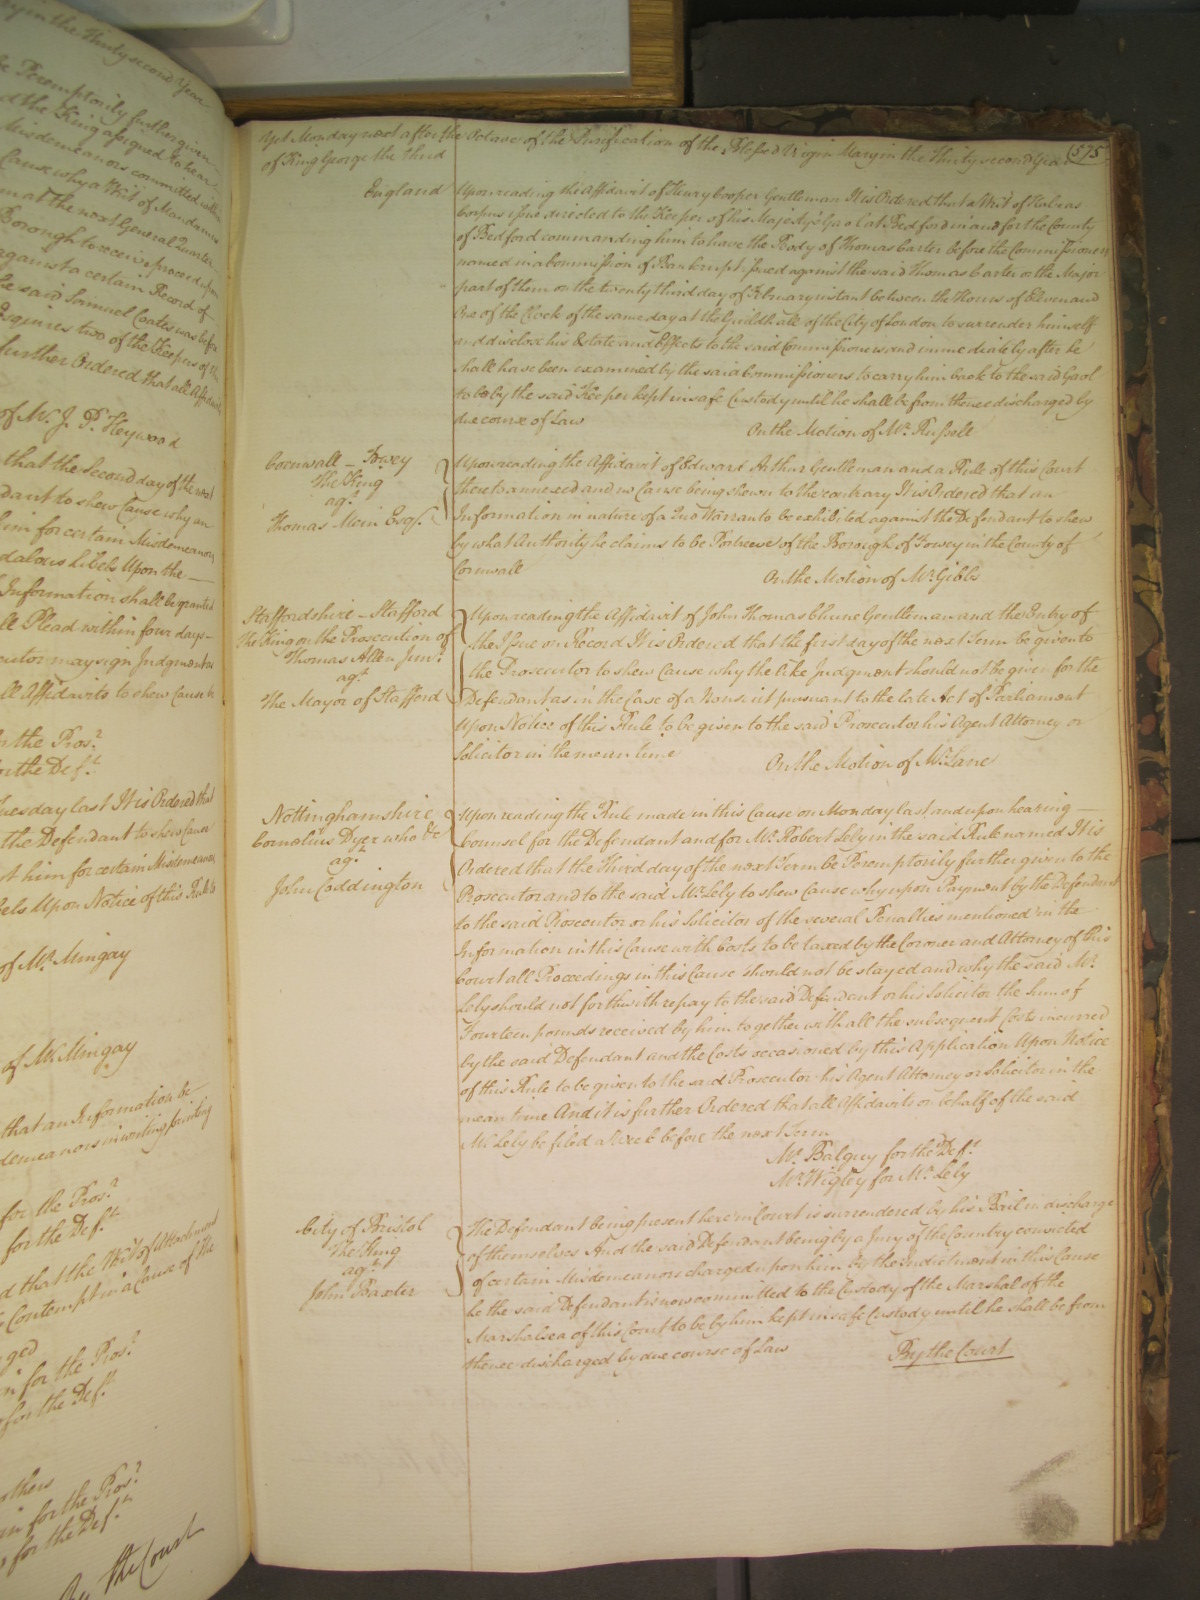 yn in the Thirty second Year
be Peremptorily further given
d the King assigned to hear
Misdemeanors committed within
Cause why a Writ of Mandamus
m at the next General Quarter
Borough to receive proceed upon
against a certain Record of
he said Samuel Coates was before
Esquires two of the Keepers of the
further Ordered that all Affidavits
of Mr. J. P. Heywood
that the second day of the next
dant to shew Cause why an
him for certain Misdemeanors
dalous Libels Upon the
Information shall be granted
ll Plead within four days
cutor may sign Judgment on
ll Affidavits to shew Cause to
for the Pros.r
for the Def.t
uesday last It is Ordered that
the Defendant to shew Cause
t him for certain Misdemeanors
bels Upon Notice of this Rule to
of Mr. Mingay
of Mr. Mingay
that an Information be
demeanors in writing printing
for the Pros.r
for the Def.t
d that the Writ of Attachment
Contempt in a Cause of The
ged
n for the Pros.r
for the Def.t
thers
in for the Pros.r
for the Def.t
By the Court
Yet Monday next after the Octave of the Purification of the Blessed Virgin Mary in the Thirty second Year 575
of King George the third
England
Upon reading the Affidavit of Henry Cooper Gentleman It is Ordered that a Writ of Habeas
Corpus issue directed to the Keeper of his Majesty's Gaol at Bedford in and for the County
of Bedford commanding him to have the Body of Thomas Carter before the Commissioners
named in a Commission of Bankrupt issued against the said Thomas Carter or the Major
part of them on the twenty third day of February instant between the Hours of Eleven and
One of the Clock of the same day at the Guildhall of the City of London to surrender himself
and disclose his Estate and Effects to the said Commissioners and immediately after he
shall have been examined by the said Commissioners to carry him back to the said Gaol
to be by the said Keeper kept in safe Custody until he shall be from thence discharged by
due course of Law
On the Motion of Mr. Russell
Cornwall – Fowey
The King
ag.t
Thomas Mein Esq.r
Upon reading the Affidavit of Edward Arthur Gentleman and a Rule of this Court
thereto annexed and no Cause being shewn to the contrary It is Ordered that an
Information in nature of a Quo Warranto be exhibited against the Defendant to shew
by what Authority he claims to be Portreeve of the Borough of Fowey in the County of
Cornwall
On the Motion of Mr. Gibbs
Staffordshire – Stafford
The King on the Prosecution of
Thomas Allen Jun.r
ag.t
The Mayor of Stafford
Upon reading the Affidavit of John Thomas Gentleman and the Entry of
the Issue on Record It is Ordered that the first day of the next Term be given to
the Prosecutor to shew Cause why the like Judgment should not be given for the
Defendant as in the Case of a Nonsuit pursuant to the late Act of Parliament
Upon Notice of this Rule to be given to the said Prosecutor his Agent Attorney or
Solicitor in the mean time
On the Motion of Mr. Lane
Nottinghamshire
Cornelius Dyer who &c
ag.t
John Coddington
Upon reading the Rule made in this Cause on Monday last and upon hearing
Counsel for the Defendant and for Mr. Robert Lely in the said Rule named It is
Ordered that the Third day of the next Term be Peremptorily further given to the
Prosecutor and to the said Mr. Lely to shew Cause why upon Payment by the Defendant
to the said Prosecutor or his Solicitor of the several Penalties mentioned in the
Information in this Cause with Costs to be taxed by the Coroner and Attorney of this
Court all Proceedings in this Cause should not be stayed and why the said Mr.
Lely should not forthwith repay to the said Defendant or his Solicitor the Sum of
Fourteen pounds received by him together with all the subsequent Costs incurred
by the said Defendant and the Costs occasioned by this Application Upon Notice
of this Rule to be given to the said Prosecutor his Agent Attorney or Solicitor in the
mean time And it is further Ordered that all Affidavits on behalf of the said
Mr. Lely be filed a Week before the next Term
Mr. Balguy for the Def.t
Mr. Wigley for Mr. Lely
City of Bristol
The King
ag.t
John Baxter
The Defendant being present here in Court is surrendered by his Bail in discharge
of themselves And the said Defendant being by a Jury of the Country convicted
of certain Misdemeanors charged upon him by the Indictment in this Cause
he the said Defendant is now committed to the Custody of the Marshal of the
Marshalsea of this Court to be by him kept in safe Custody until he shall be from
thence discharged by due course of Law
By the Court